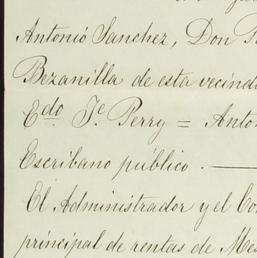 Antonio Sanchez, Don
Bezanilla de esta
Edo. Je. Perry = Anto
Escribano público. —
El Administrador y el Co
principal de rentas de Me